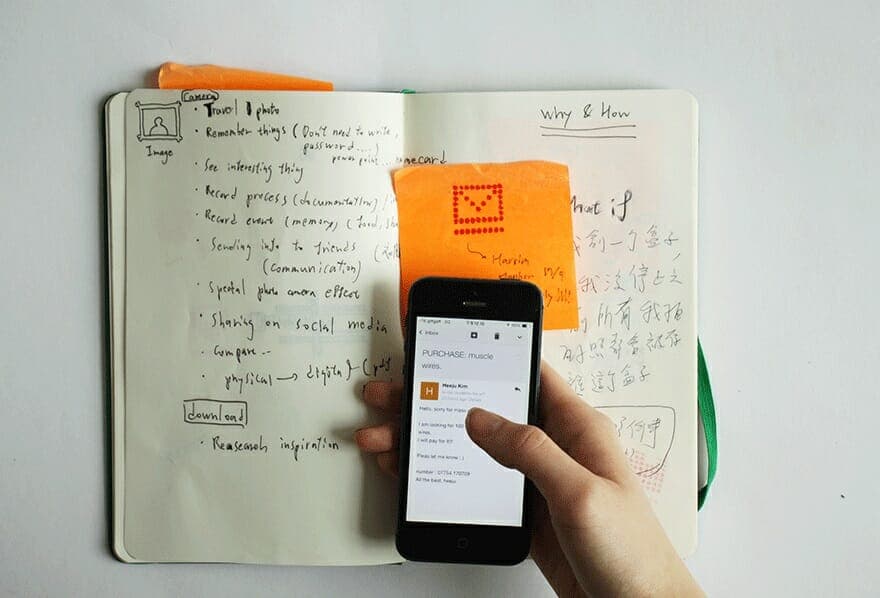 Camera
Image
• Travel photo
• Remember things (Don't need to write,
password....)
power point... namecard
• See interesting thing
• Record process (documentation)
• Record event (memory) (food,
• Sending info to friends
(communication)
• Spetal photo camera effect
• Sharing on social media
• Compare --
• physical → (pdf
download
• Reasearch inspiration
Why & How
what if
我創一個盒子,
我沒停止之
前 所有我拍
的照都會被存
進這個盒子
Inbox
PURCHASE: muscle
wires.
H
Heeju Kim
Hello, sorry for
I am looking for 100
wires.
I will pay for it?
Pleas let me know : )
number : 01754 170709
All the best, heeju